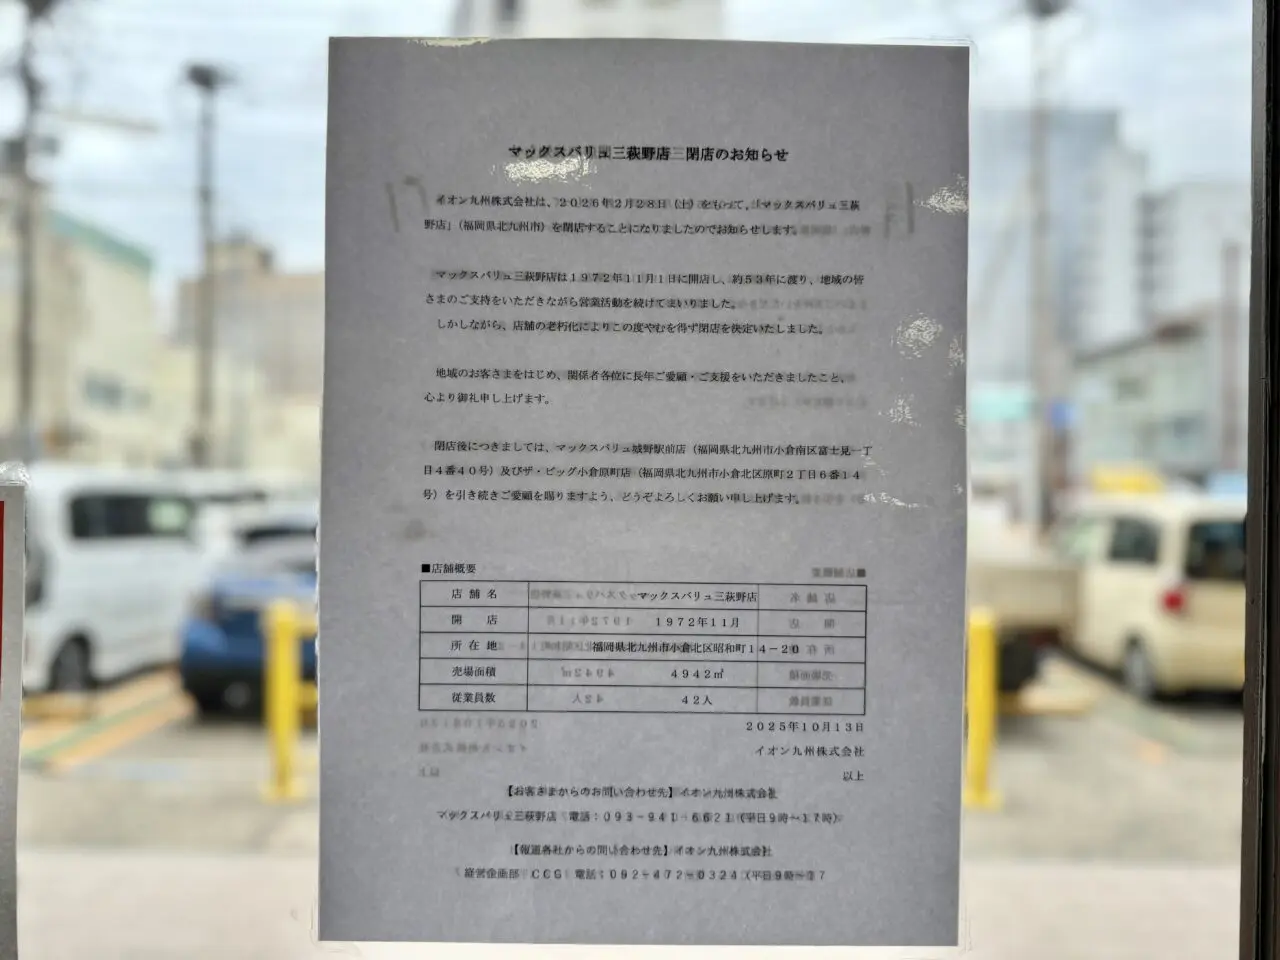 マックスバリュ三萩野店 閉店のお知らせ
イオン九州株式会社は、2026年2月28日（土）をもって、「マックスバリュ三萩
野店」（福岡県北九州市）を閉店することになりましたのでお知らせします。
マックスバリュ三萩野店は1972年11月1日に開店し、約53年に渡り、地域の皆
さまのご支持をいただきながら営業活動を続けてまいりました。
しかしながら、店舗の老朽化によりこの度やむを得ず閉店を決定いたしました。
地域のお客さまをはじめ、関係者各位に長年ご愛顧・ご支援をいただきましたこと、
心より御礼申し上げます。
閉店後につきましては、マックスバリュ城野駅前店（福岡県北九州市小倉南区富士見一丁
目4番40号）及びザ・ビッグ小倉原町店（福岡県北九州市小倉北区原町2丁目6番14
号）を引き続きご愛顧を賜りますよう、どうぞよろしくお願い申し上げます。
■店舗概要
店舗名 マックスバリュ三萩野店
開店 1972年11月
所在地 福岡県北九州市小倉北区昭和町14－20
売場面積 4942㎡
従業員数 42人
2025年10月13日
イオン九州株式会社
以上
【お客さまからのお問い合わせ先】イオン九州株式会社
マックスバリュ三萩野店 電話：093－941－6621（平日9時～17時）
【報道各社からの問い合わせ先】イオン九州株式会社
経営企画部 CCG 電話：092－472－0324（平日9時～17